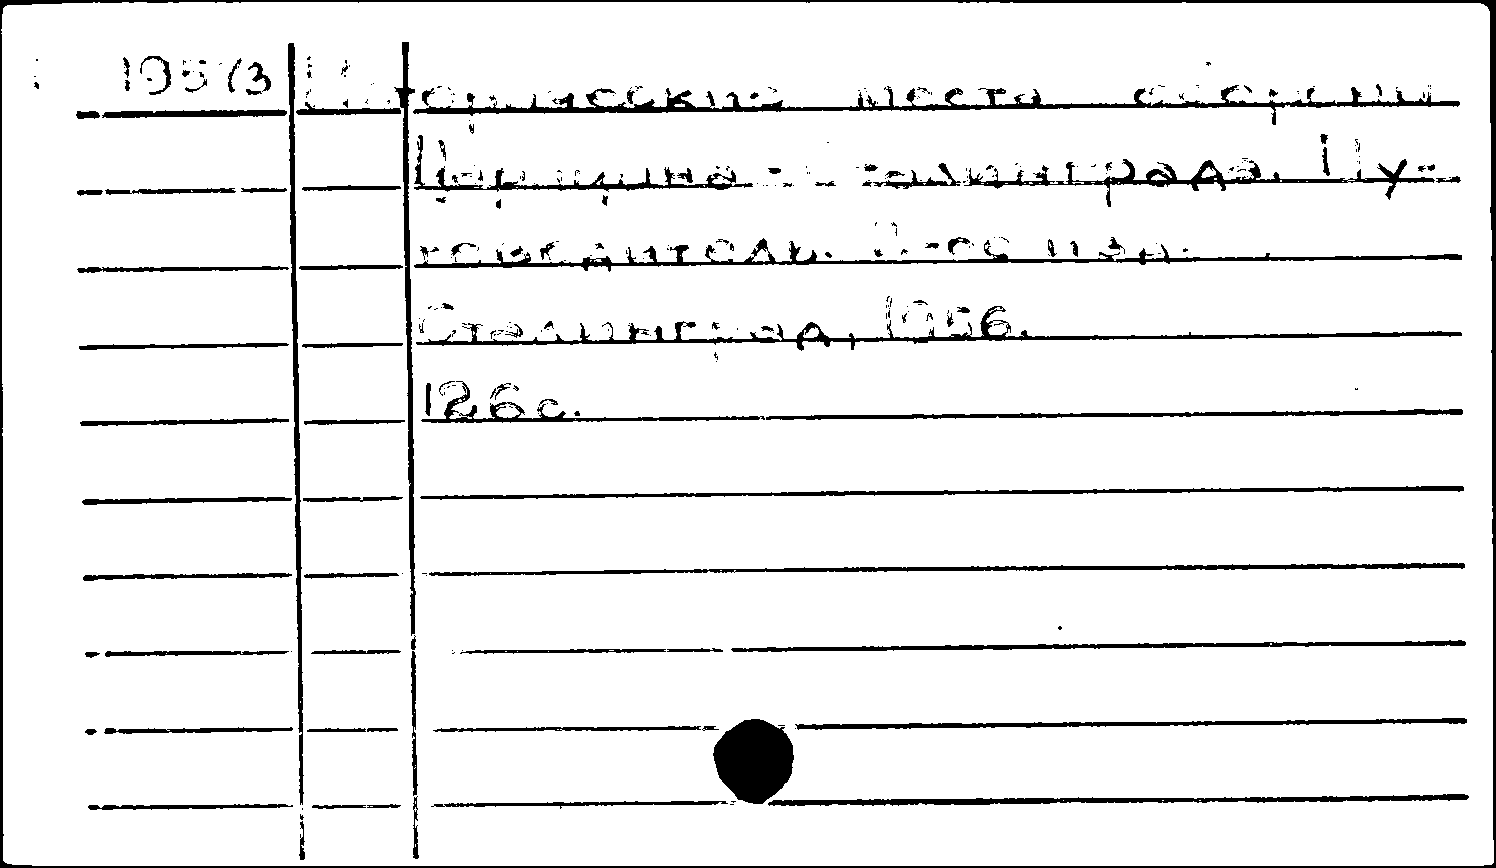 1957/3 Исторические места обороны
Царицына - Сталинграда. Пу-
товодитель. 2-ое изд.
Сталинград, 1956.
126с.